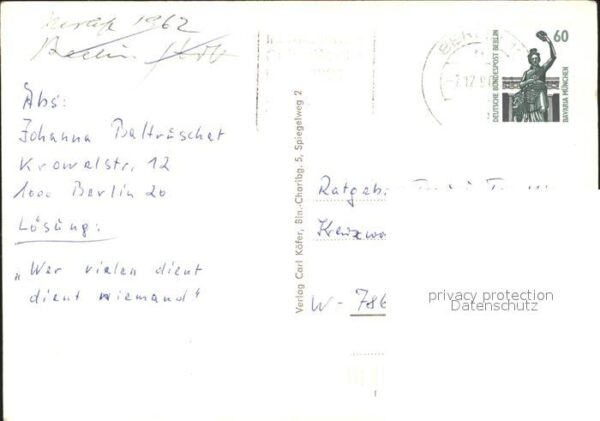 1962
Berlin
Abs:
Johanna Baltruschat
Krowelstr. 12
1000 Berlin 20
Lösung:
„Wer vielen dient
dient niemand“
Verlag Carl Köfer, Bln.-Charlbg. 5, Spiegelweg 2
BERLIN
60
DEUTSCHE BUNDESPOST BERLIN
BAVARIA MÜNCHEN
Ratgeb
W-786
privacy protection
Datenschutz